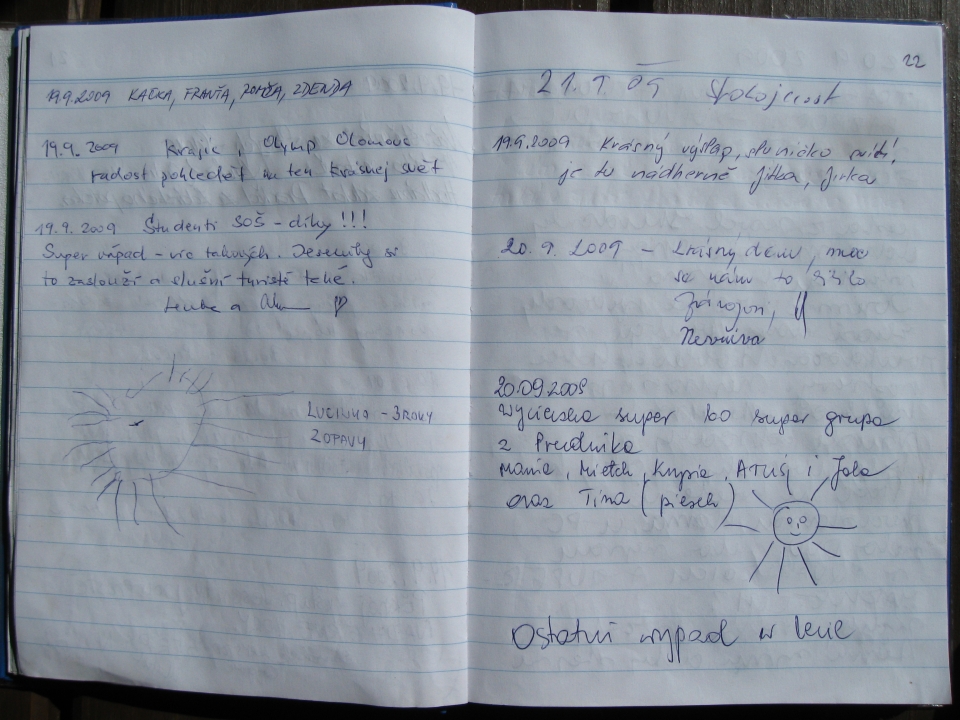 19.9.2009 KAČKA, FRANŤA, ZDENDA
19.9. 2009 Krajíc, Olymp Olomouc
radost pohledět na ten krásnej svět
19.9. 2009 Studenti SOŠ - díky!!!
Super nápad - víc takových. Jeseníky si
to zaslouží a slušní turisté také.
Lenka a
LUCINKA - 3ROKY
ZOPAVY
22
21. 9 09 Spokojenost
19.9.2009 Krásný výšlap, sluníčko svítí,
je tu nádherně Jitka, Jirka
20. 9. 2009 - krásný den, moc
se nám to líbilo
20.09.2009
Wycieczka super bo super grupa
z Prudnika
Mania, Mietek, Krysia, ATUŚ i Jola
oraz Tina (piesek)
Ostatni wypad w lecie